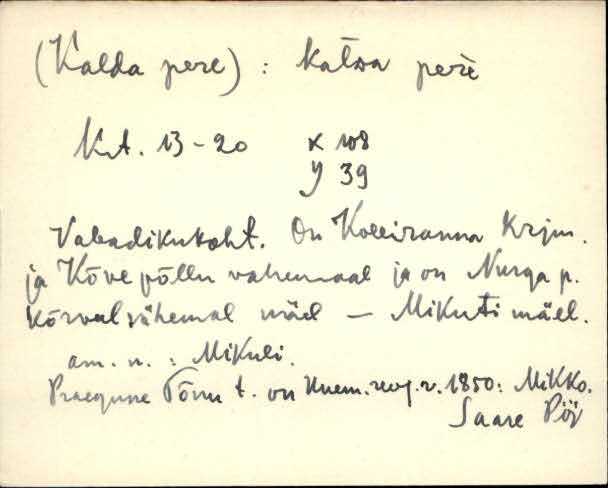 (Kalda pere) : Katsa pere
Kt. 13-20 x 108
y 39
Vabadikukoht. On Krjm.
ja Kõve põllu vahemaal ja on Nurga p.
Kõrval vähemal mäel - Mikuti mäel.
am. n. : Mikuli.
Praegune Tõnu t. on rev. r. 1850: Mikko.
Saare Pöi